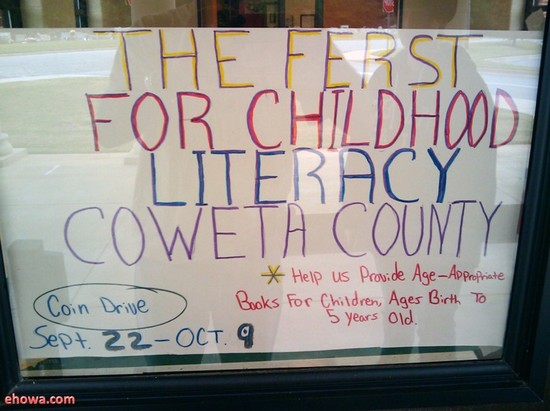 THE FERST
FOR CHILDHOOD
LITERACY
COWETA COUNTY
* Help us Provide Age-Appropriate
Books For Children, Ages Birth To
5 years Old.
Coin Drive
Sept. 22 - OCT. 9
ehowa.com